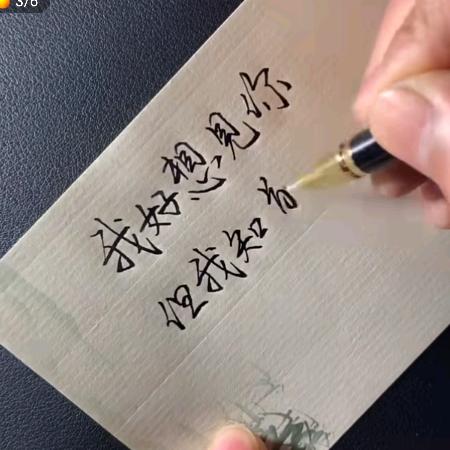 3/6
我好想見你
但我知